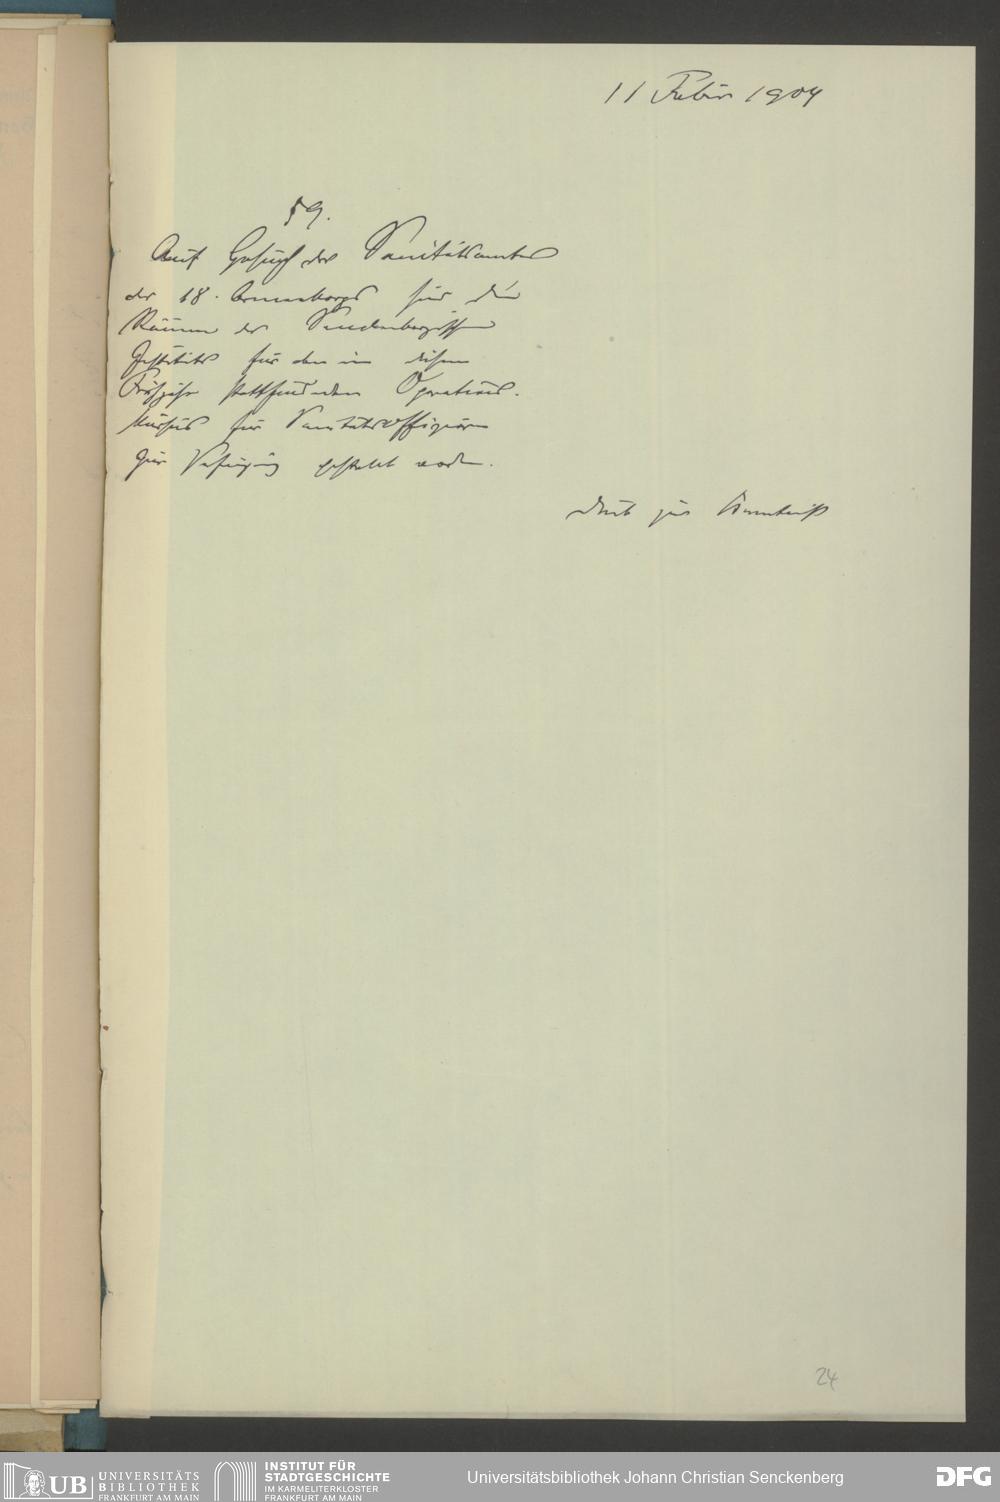 11 Febr 1904
§9.
Auf Gesuch des Sanitätsamtes
des 18. Armeekorps sind die
Räume des Senckenbergischen
Instituts für den in diesem
Frühjahr stattfindenden Operations-
kursus für Sanitätsoffiziere
zur Verfügung gestellt worden.
Dient zur Kenntniß
24
UB UNIVERSITÄTS
BIBLIOTHEK
FRANKFURT AM MAIN
INSTITUT FÜR
STADTGESCHICHTE
IM KARMELITERKLOSTER
FRANKFURT AM MAIN
Universitätsbibliothek Johann Christian Senckenberg
DFG